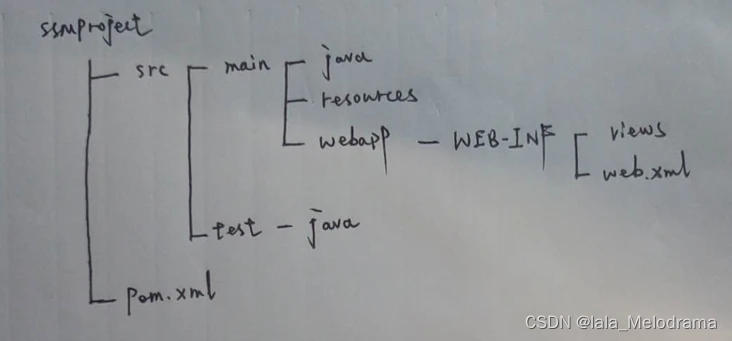 ssmproject
src main java
resources
webapp - WEB-INF views
web.xml
test - java
pom.xml
CSDN @lala_Melodrama